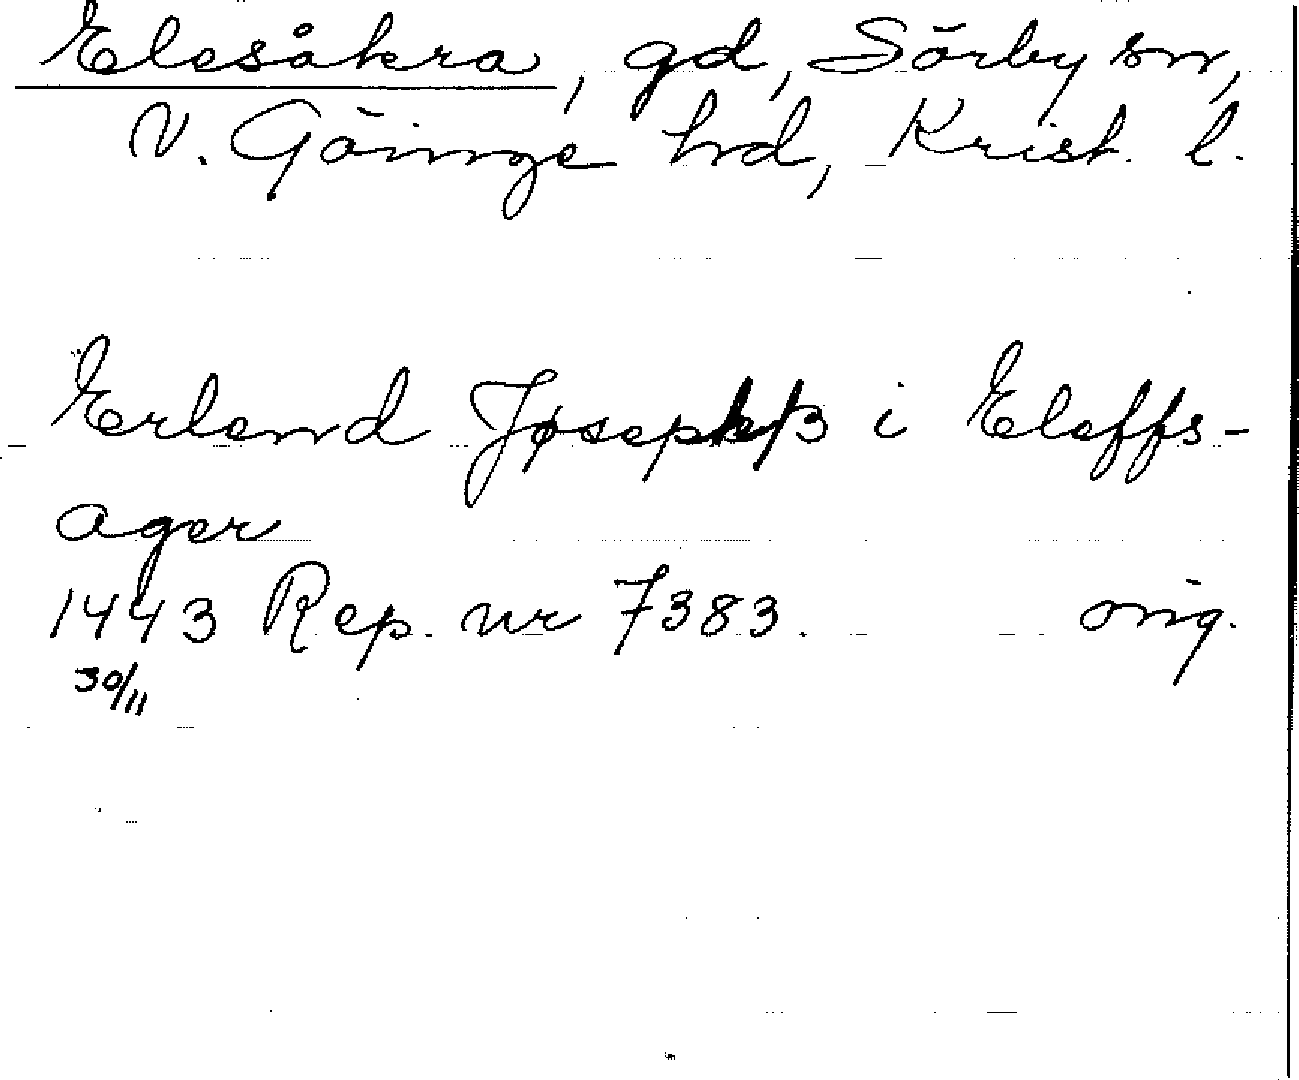 Elesåkra, gd, Sörby sn,
V. Göinge hd, Krist. l.
Erlend Jøsepß i Eleffs-
ager
1443 Rep. nr 7383. orig.
30/11